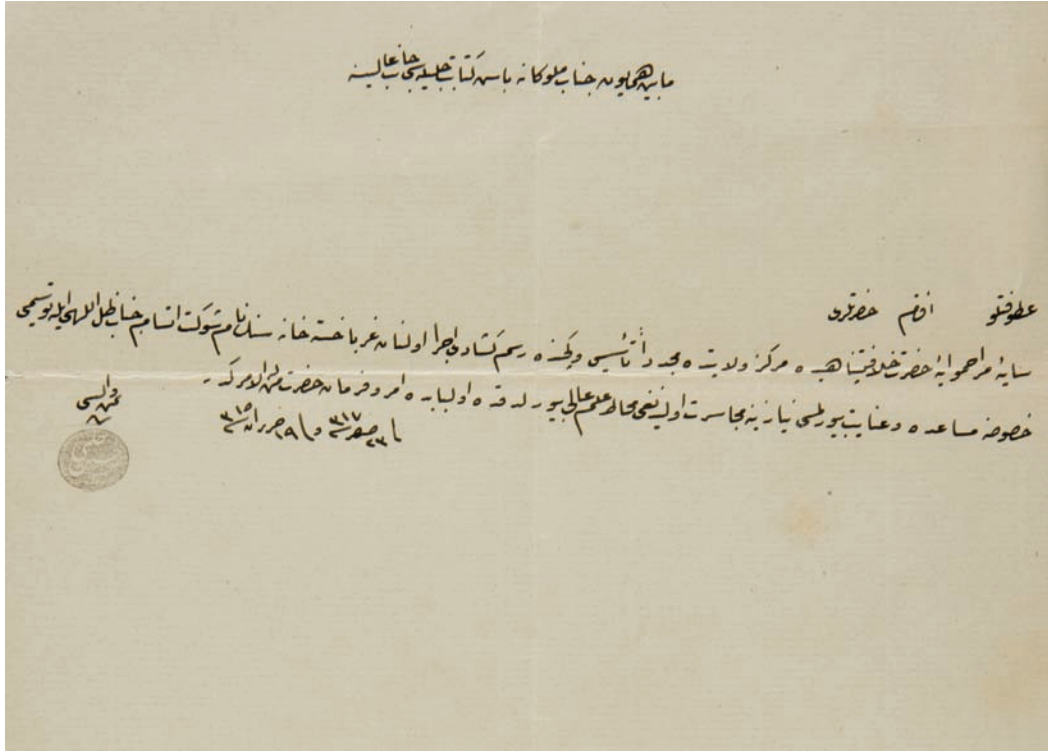 مابين همايون جناب ملوكانه باش كتابت جليله‌سى جانب عاليسنه
عطوفتلو افندم حضرتلرى
سايۀ مراحموايۀ حضرت خلافتپناهيده مركز ولايتده مجدداً تأسيس وكچنده رسم كشادى اجرا اولنان غربا خسته خانه سنك نام شوكت اتسام جناب ظل اللهى ايله توسيمى
خصوصنه مساعده وعنايت بيورلمسى نيازينه مجاسرت اولنديغى محاط علم عالى بيورلدقده اولبابده امر وفرمان حضرت من له الامركدر
فى ٢٣ صفر سنه ٣١٧ وفى ١٩ حزيران سنه ٣١٥
واليسى